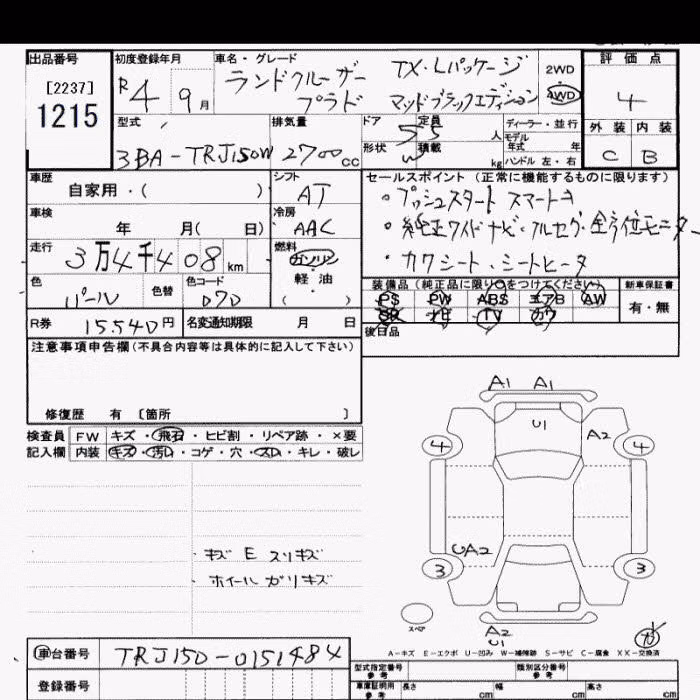 出品番号 初度登録年月 車名・グレード 評価点
[2237] R4 9月 ランドクルーザー TX・Lパッケージ 2WD
1215 プラド マッドブラックエディション 4WD 4
型式 排気量 ドア 5 定員 5人 ディーラー・並行 外装 内装
3BA-TRJ150W 2700cc 形状 W 積載 kg モデル年式 年 C B
ハンドル 左・右
車歴 自家用・( ) シフト AT セールスポイント(正常に機能するものに限ります)
・プッシュスタート スマートキ
車検 年 月( 日) 冷房 AAC ・純正ワイドナビ・フルセグ・全方位モニター
走行 3万4千408km 燃料 ガソリン ・カワシート・シートヒータ
軽油
( )
色 パール 色替 色コード 070 装備品(純正品に限り○をつけてください) 新車保証書
PS PW ABS エアB AW 有・無
SR ナビ TV カワ
R券 15540円 名変通知期限 月 日 後日品
注意事項申告欄(不具合内容等は具体的に記入して下さい)
修復歴 有 〔箇所 〕
検査員 FW キズ・飛石・ヒビ割・リペア跡・×要
記入欄 内装 キズ・汚レ・コゲ・穴・スレ・キレ・破レ
A1 A1
U1
A2
4 4
UA2
3 3
・キズ E スリキズ
・ホイール ガリキズ
スペア
A2
U1
A-キズ E-エクボ U-凹み W-補修跡 S-サビ C-腐食 XX-交換済
車台番号 TRJ150-0151484
登録番号
型式指定番号 参考 類別区分番号 参考
車庫証明用 参考 長さ cm 幅 cm 高さ cm